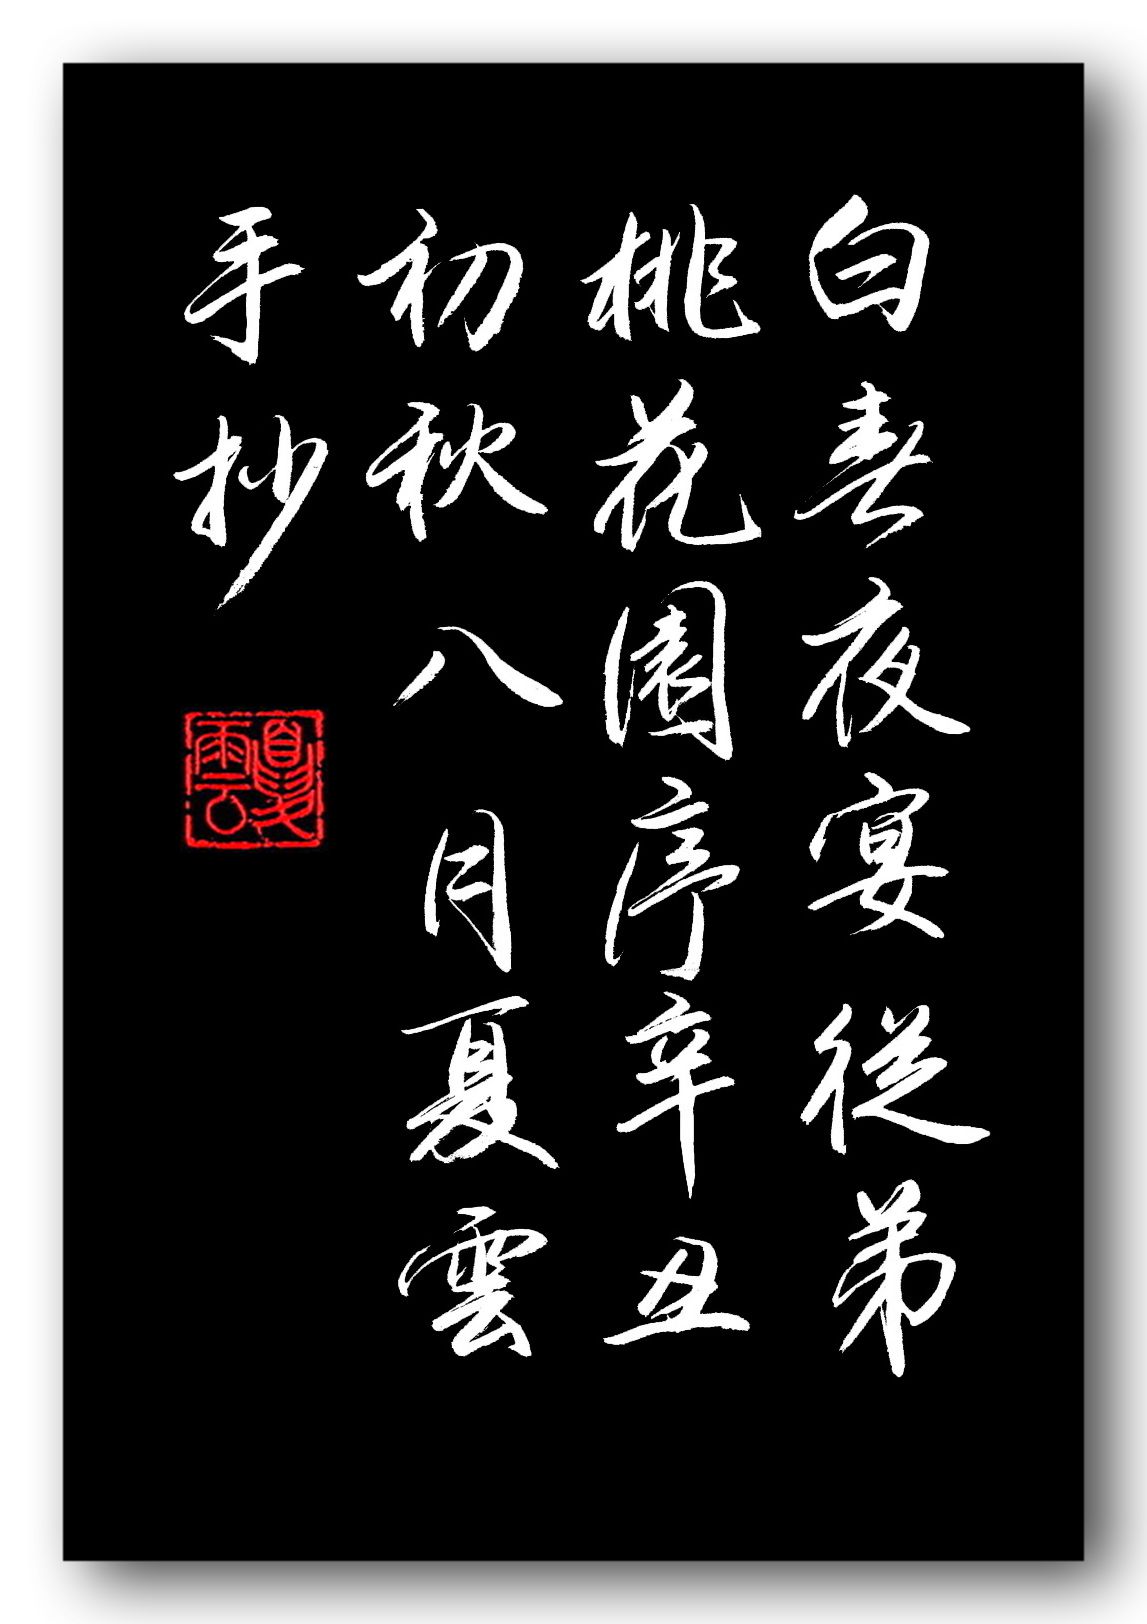 白春夜宴従弟
桃花園序辛丑
初秋八月夏雲
手抄
夏雲